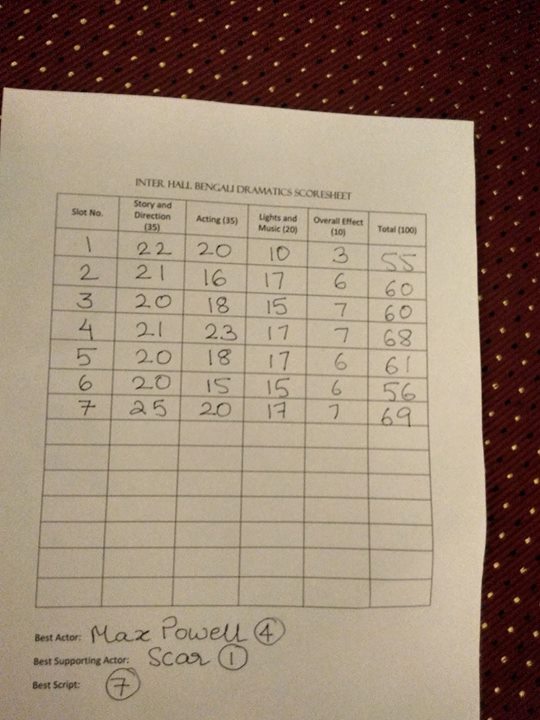 INTER HALL BENGALI DRAMATICS SCORESHEET
Slot No. Story and Direction (35) Acting (35) Lights and Music (20) Overall Effect (10) Total (100)
1 22 20 10 3 55
2 21 16 17 6 60
3 20 18 15 7 60
4 21 23 17 7 68
5 20 18 17 6 61
6 20 15 15 6 56
7 25 20 17 7 69
Best Actor: Max Powell 4
Best Supporting Actor: Scar 1
Best Script: 7